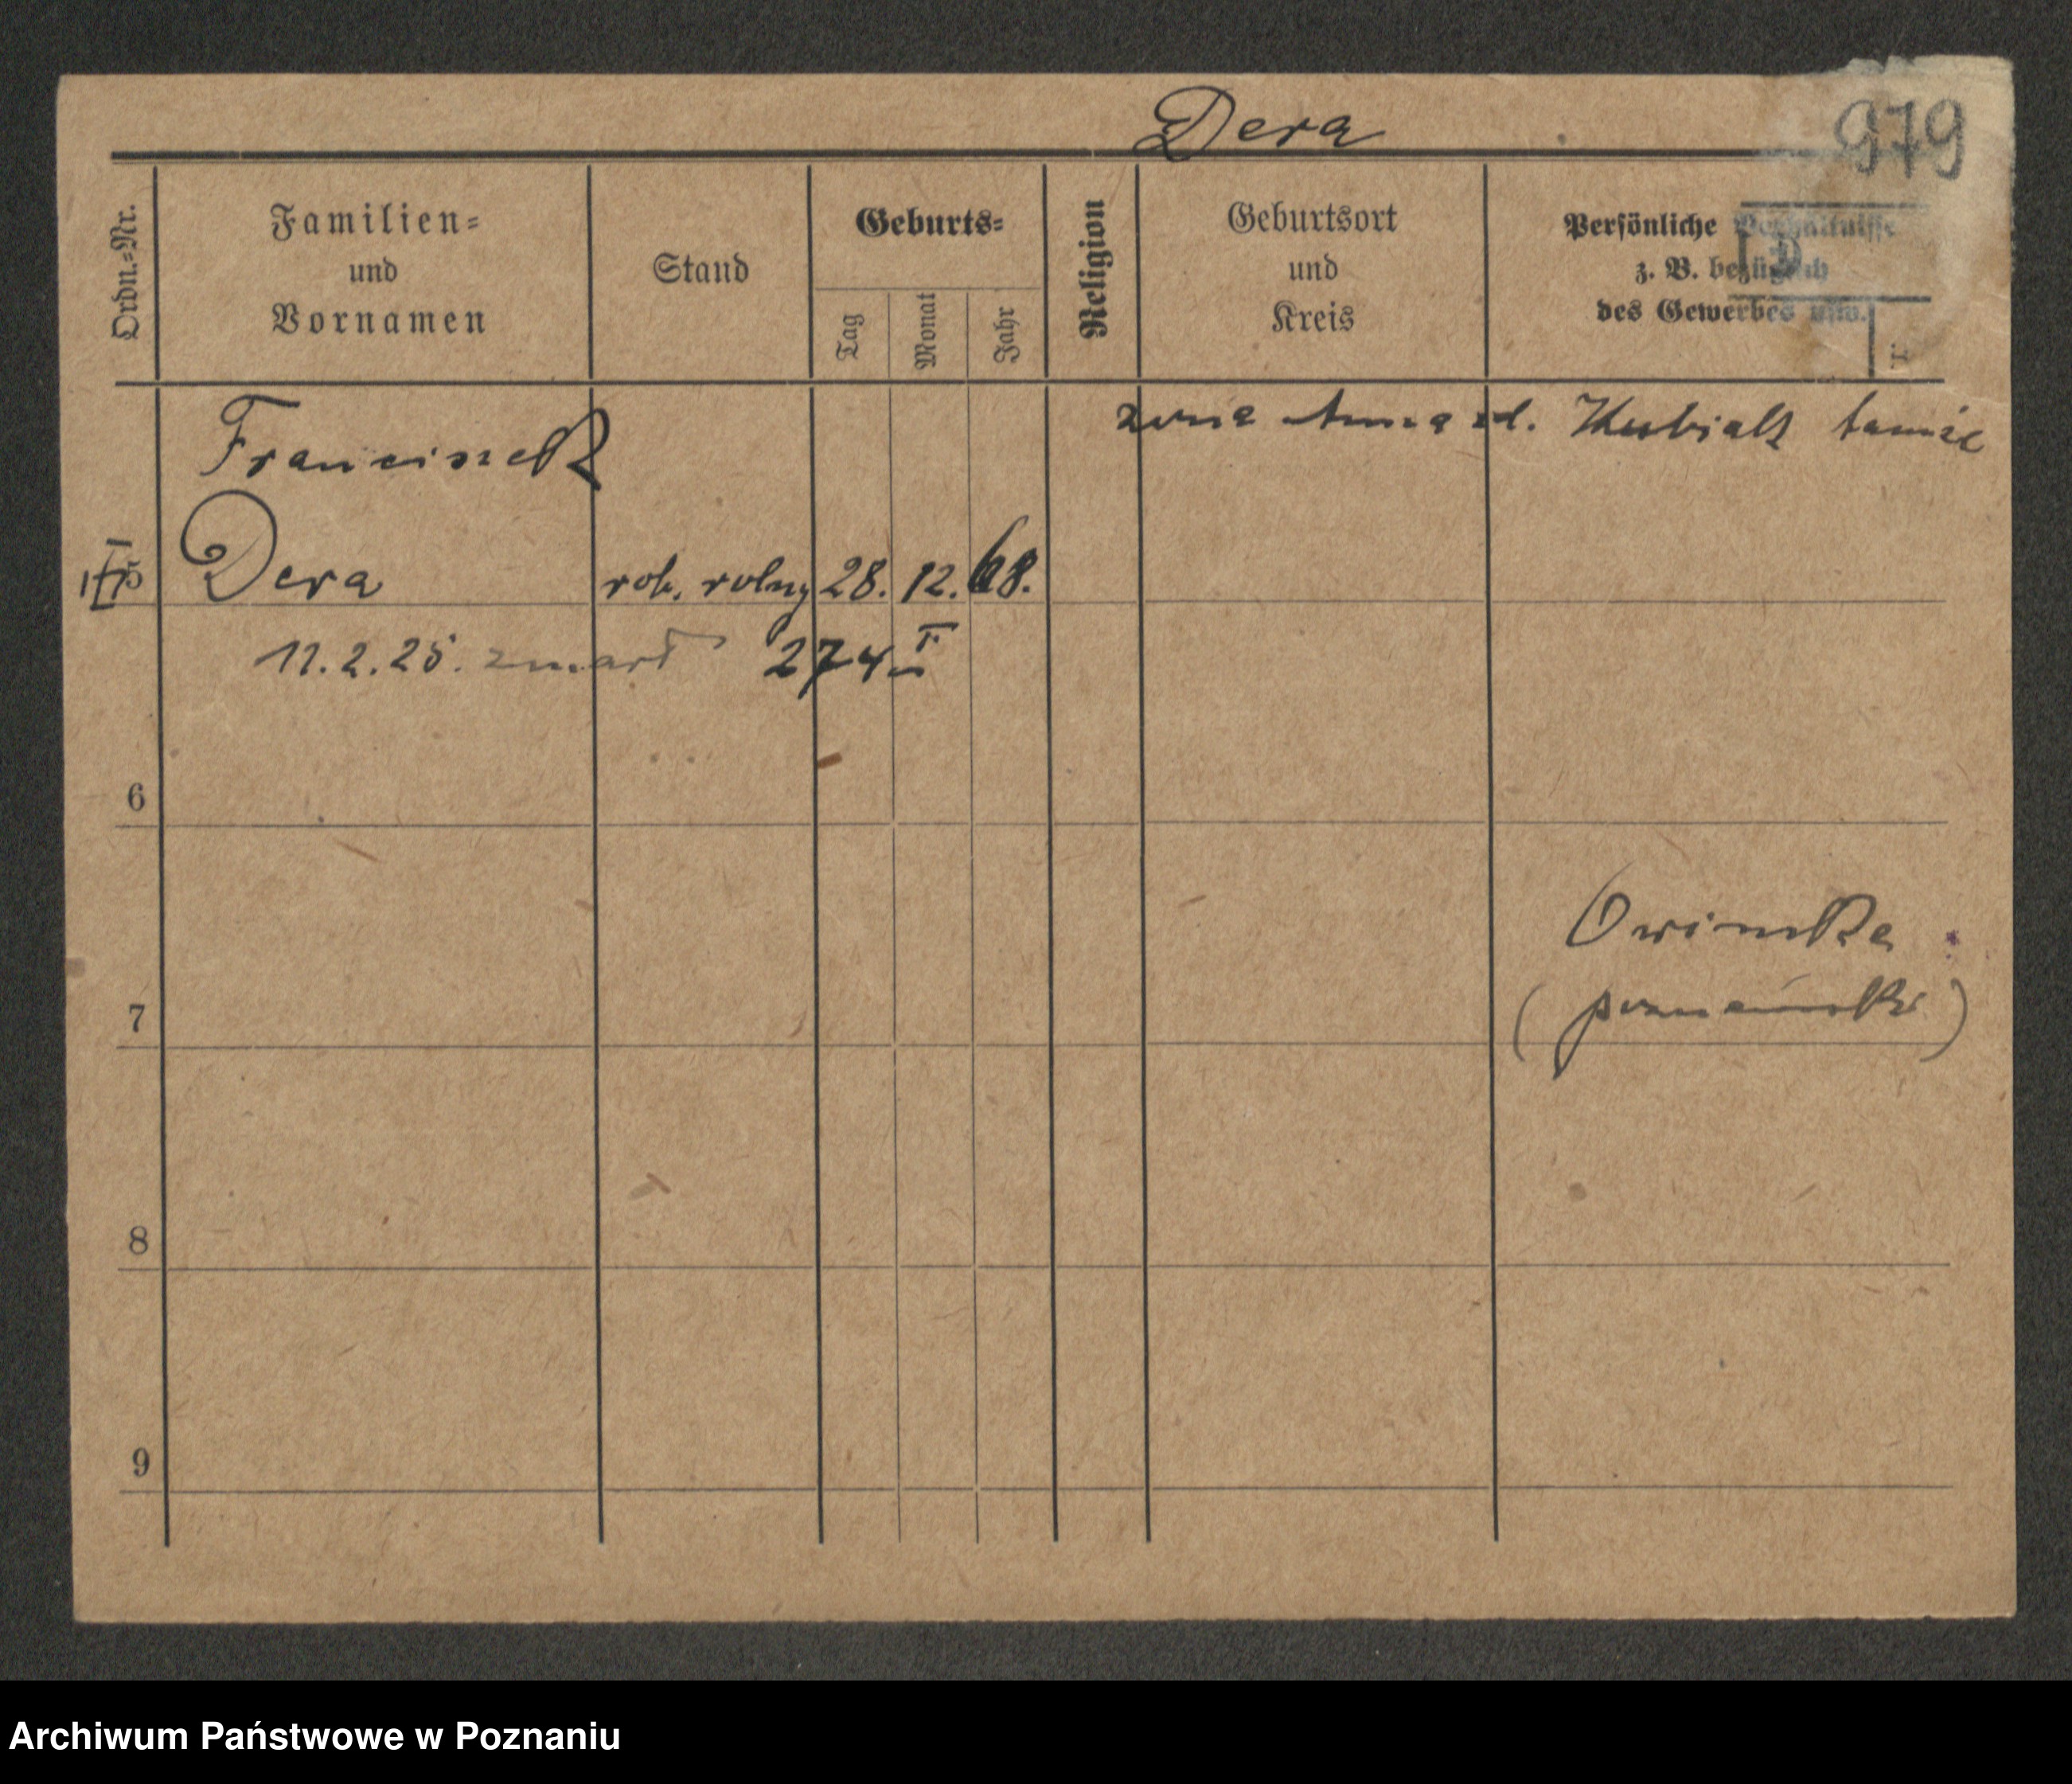 Dera
979
Ordn.-Nr.
Familien-
und
Vornamen
Stand
Geburts-
Tag
Monat
Jahr
Religion
Geburtsort
und
Kreis
Persönliche Verhältnisse
z. B. bezüglich
des Gewerbes usw.
Franciszek
żona Anna zd. Kubiak tamże
5
Dera rob. rolny 28. 12. 68.
11.2.25. zmarł 274
6
Owińska
(poznański)
7
8
9
Archiwum Państwowe w Poznaniu